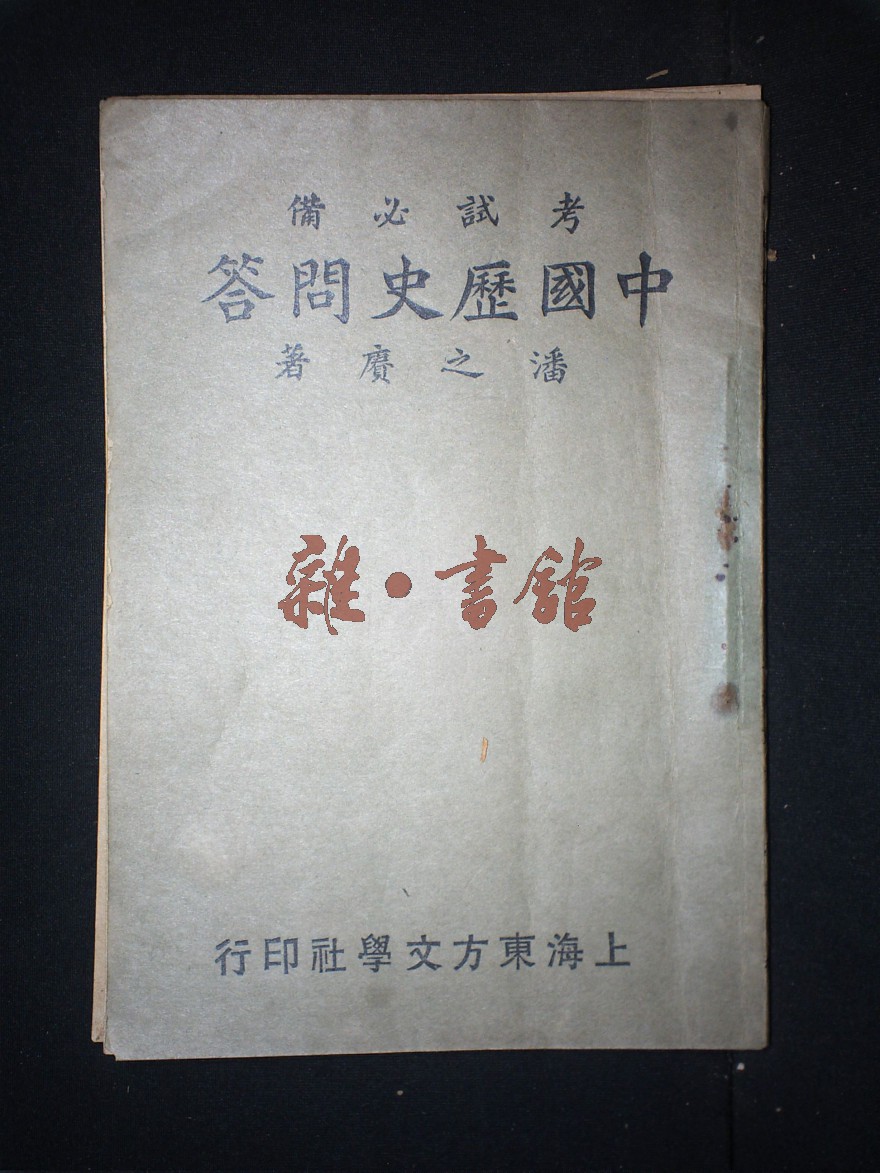 考試必備
中國歷史問答
潘之賡著
雜·書館
上海東方文學社印行